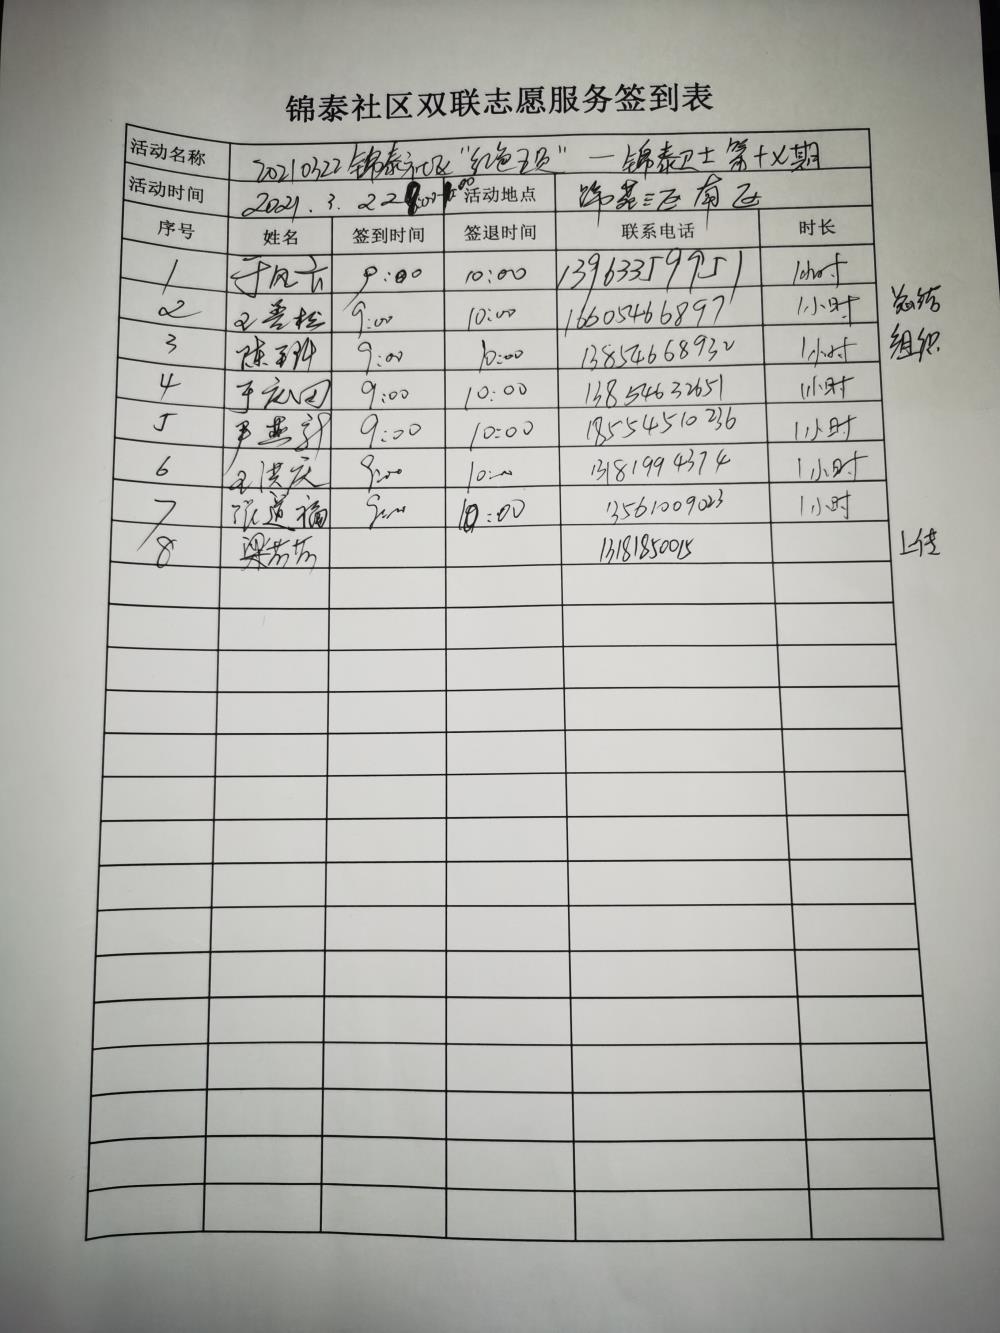 锦泰社区双联志愿服务签到表
活动名称 20210322锦泰社区"红色" 一锦泰卫士第十期
活动时间 2021.3.22 活动地点 锦苑三区南区
序号 姓名 签到时间 签退时间 联系电话 时长
1 于风云 9:00 10:00 13963359951 1小时
2 王善松 9:00 10:00 16605466897 1小时 总结
3 陈 9:00 10:00 13854668932 1小时 组织
4 于 9:00 10:00 13854632651 1小时
5 尹燕 9:00 10:00 18554510236 1小时
6 王洪庆 9:00 10:00 13181994374 1小时
7 张道福 9:00 10:00 13561009023 1小时
8 梁芳芳 13181850015 上传